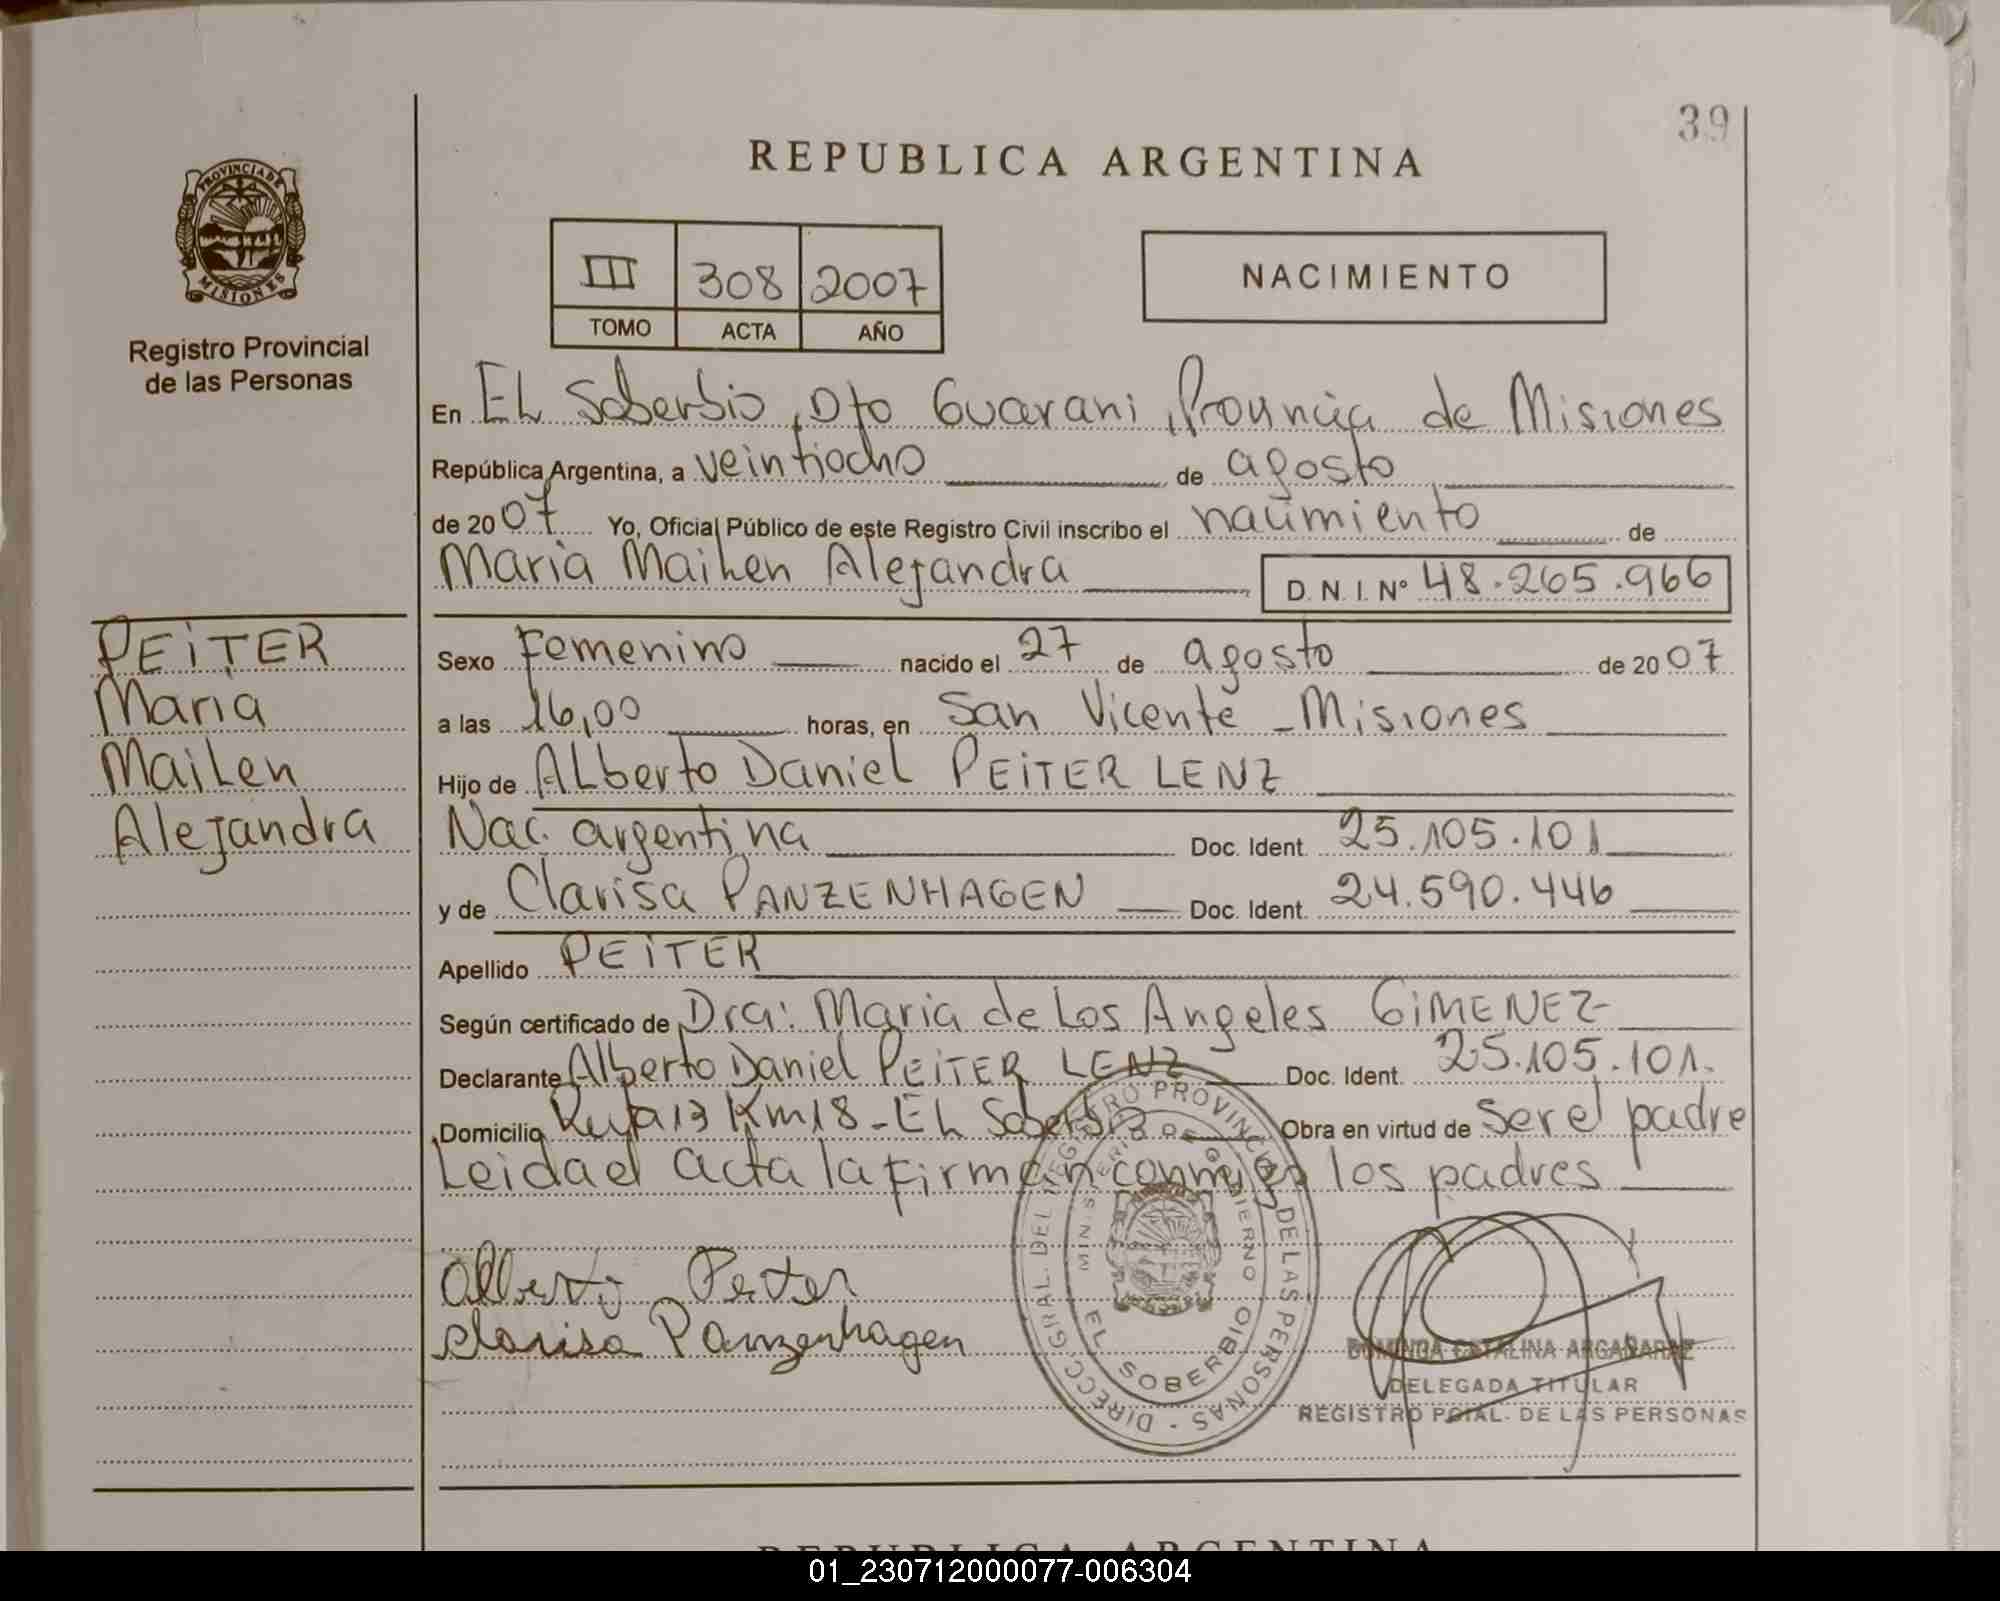 39
REPUBLICA ARGENTINA
PROVINCIA DE
MISIONES
Registro Provincial
de las Personas
III 308 2007
TOMO ACTA AÑO
NACIMIENTO
En EL Soberbio, Dto Guarani, Provincia de Misiones
República Argentina, a veintiocho de agosto
de 2007 Yo, Oficial Público de este Registro Civil inscribo el nacimiento de
Maria Mailen Alejandra D. N. I. Nº 48.265.966
PEiTER
Maria
Mailen
Alejandra
Sexo Femenino nacido el 27 de agosto de 2007
a las 16,00 horas, en San Vicente - Misiones
Hijo de ALberto Daniel PEiTER LENZ
Nac. argentina Doc. Ident. 25.105.101
y de Clarisa PANZENHAGEN Doc. Ident. 24.590.446
Apellido PEiTER
Según certificado de Dra: Maria de Los Angeles GiMENEZ
Declarante Alberto Daniel PEiTER LENZ Doc. Ident. 25.105.101.
Domicilio Ruta 13 Km 18 - EL Soberbio Obra en virtud de ser el padre
Leida el acta la firman conmigo los padres
Alberto Peiter
Clarisa Panzenhagen
DIRECC. GRAL. DEL REGISTRO PROVINCIAL DE LAS PERSONAS -
MINISTERIO DE GOBIERNO
EL SOBERBIO
DOMINGA CATALINA ARGAÑARAZ
DELEGADA TITULAR
REGISTRO PCIAL. DE LAS PERSONAS
REPUBLICA ARGENTINA
01_230712000077-006304